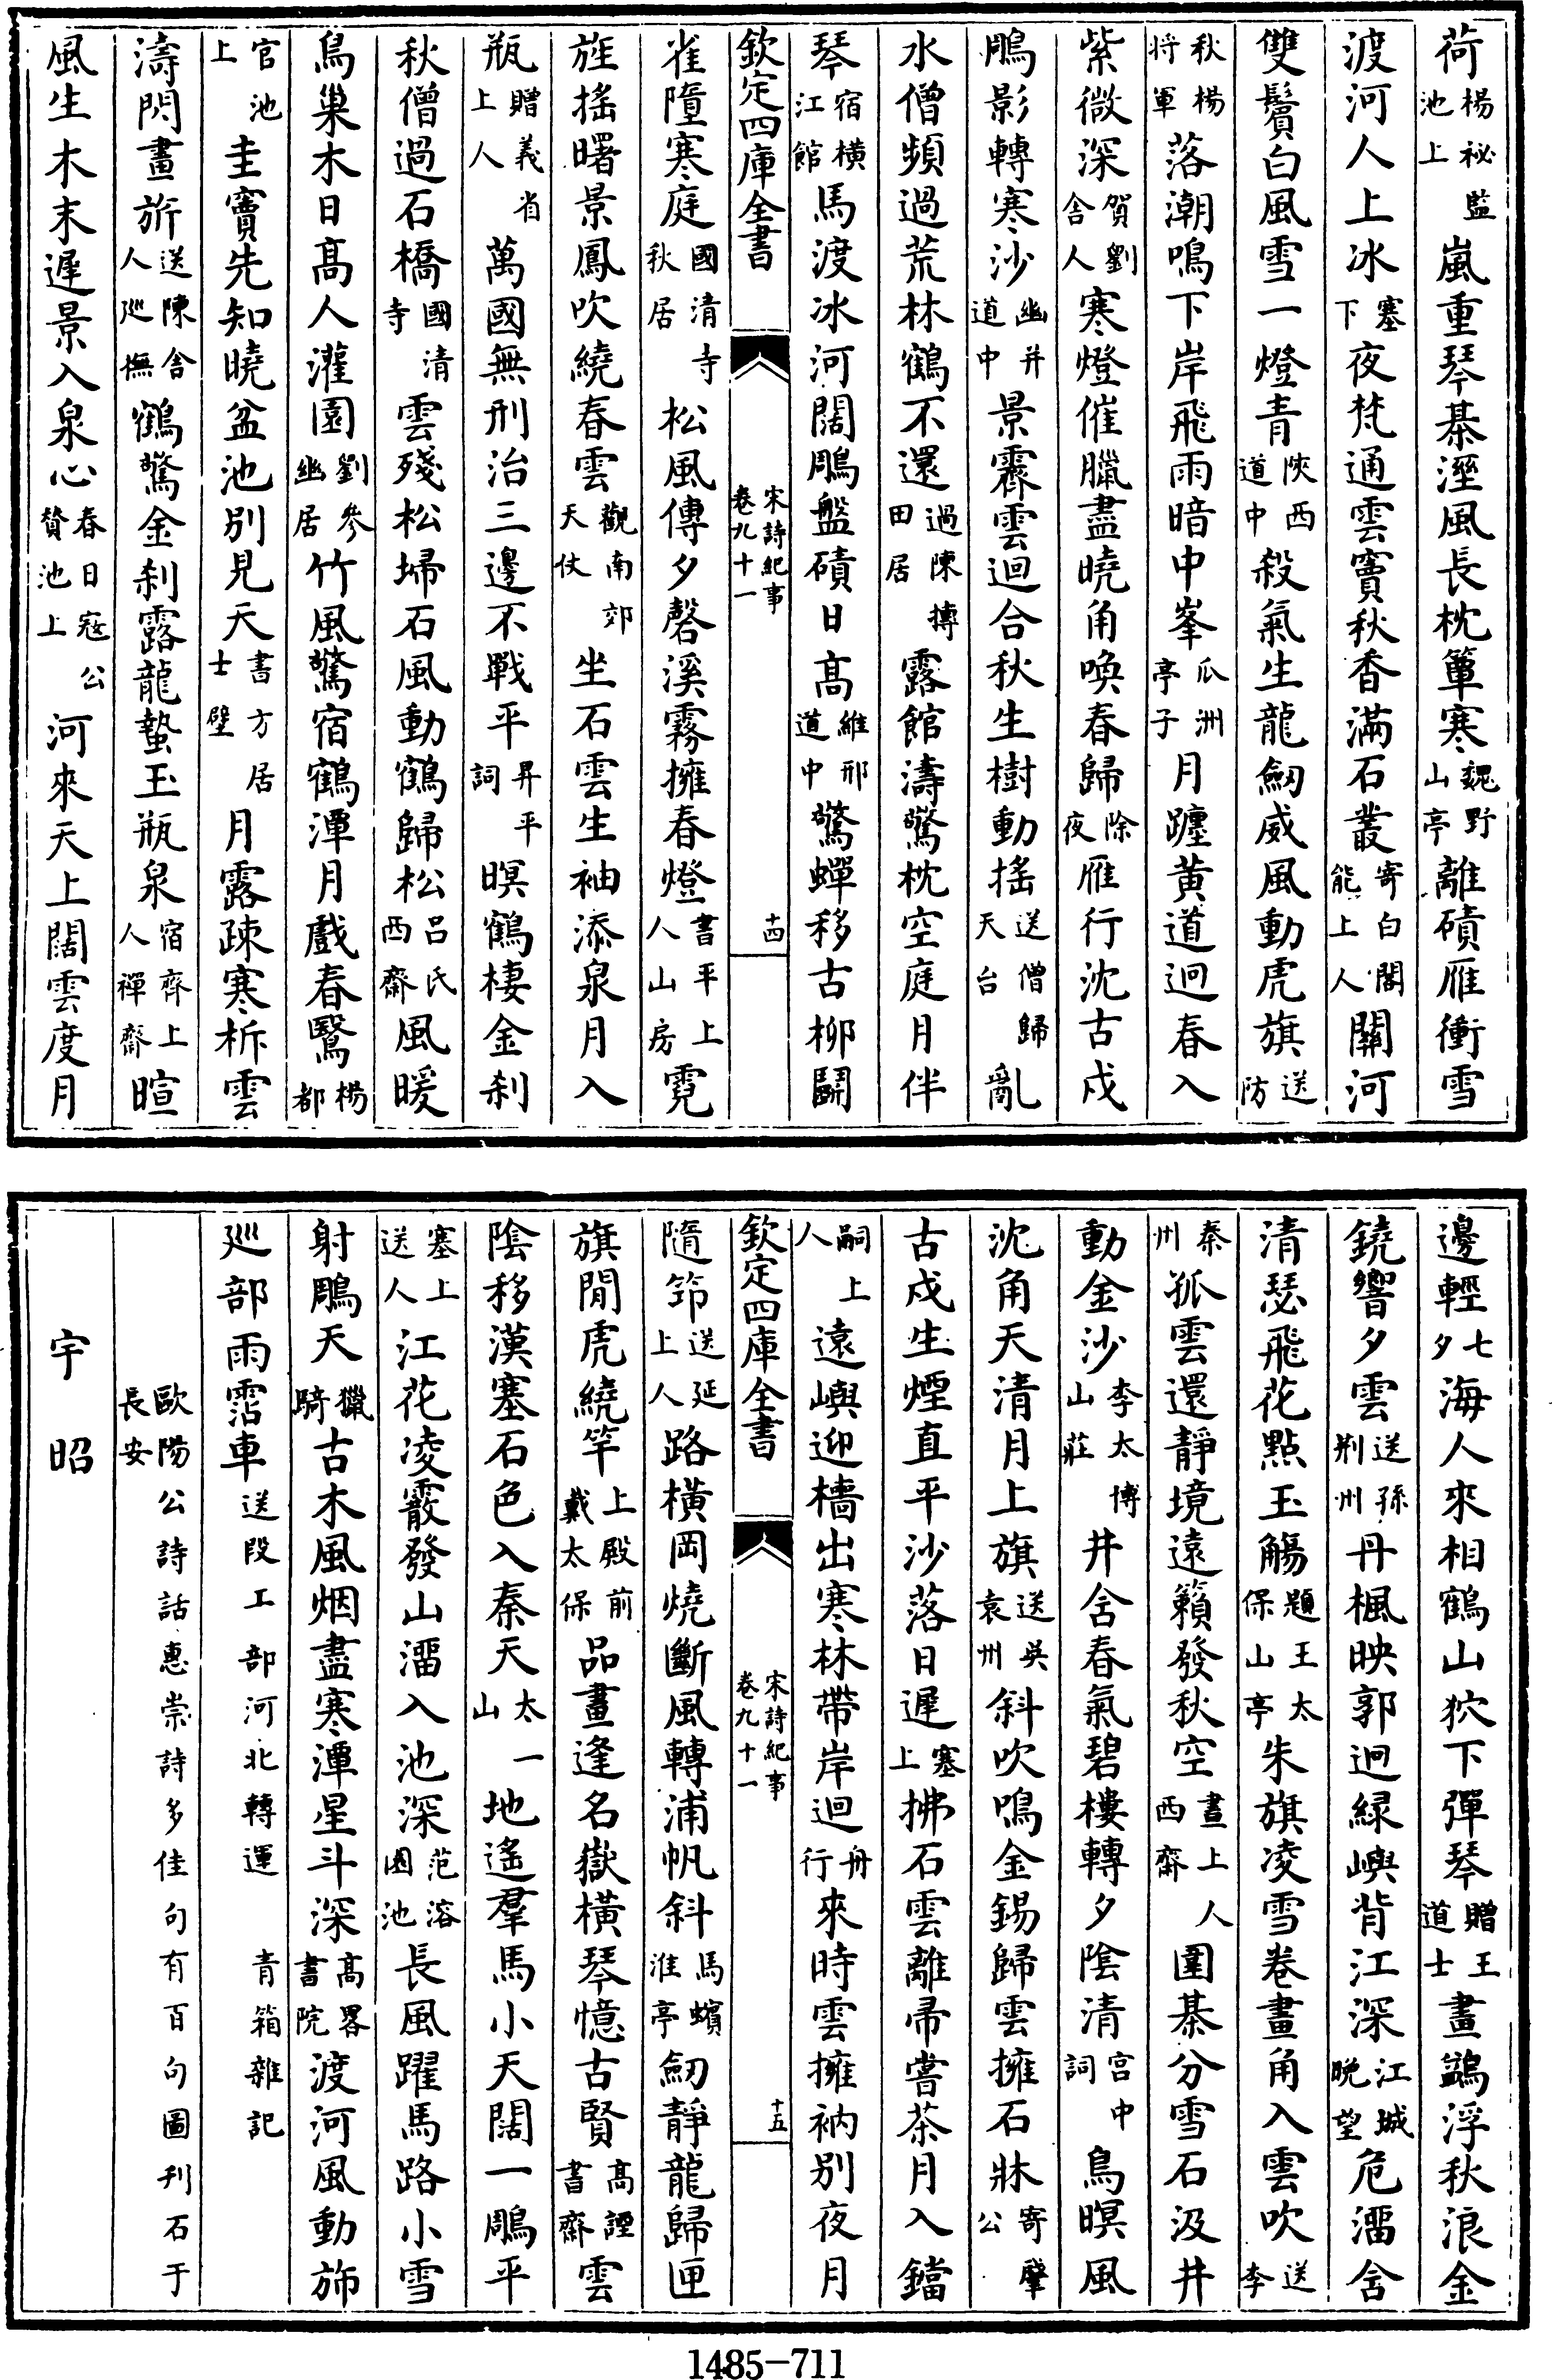 荷楊秘監池上嵐重琴棊溼風長枕簟寒魏野山亭離磧雁衝雪
渡河人上冰塞下夜梵通雲竇秋香滿石叢寄白閣能上人關河
雙鬢白風雪一燈青陜西道中殺氣生龍劒威風動虎旗送防
秋楊将軍落潮鳴下岸飛雨暗中峯瓜洲亭子月躔黄道迥春入
紫微深賀劉舎人寒燈催臘盡曉角喚春歸除夜雁行沈古戍
鵰影轉寒沙幽并道中景霽雲迴合秋生樹動揺送僧歸天台亂
水僧頻過荒林鶴不還過陳摶田居露館濤驚枕空庭月伴
琴宿橫江館馬渡冰河闊鵰盤磧日高維邢道中驚蟬移古柳鬭
欽定四庫全書 宋詩紀事 卷九十一 十四
雀墮寒庭國清寺秋居松風傳夕磬溪霧擁春燈書平上人山房霓
旌揺曙景鳳吹繞春雲觀南郊天仗坐石雲生袖添泉月入
瓶贈義省上人萬國無刑治三邊不戰平昇平詞暝鶴棲金刹
秋僧過石橋國清寺雲殘松埽石風動鶴歸松吕氏西齋風暖
鳥巢木日高人灌園劉參幽居竹風驚宿鶴潭月戲春鷖楊都
官池上圭竇先知曉盆池别見天書方居士壁月露疎寒柝雲
濤閃畫旂送陳舎人廵撫鶴驚金刹露龍蟄玉瓶泉宿齊上人禪齋暄
風生木末遲景入泉心春日寇公贊池上河來天上闊雲度月
邊輕七夕海人來相鶴山狖下彈琴贈王道士畫鷁浮秋浪金
鐃響夕雲送孫荆州丹楓映郭迥緑嶼背江深江城晚望危溜含
清瑟飛花點玉觴題王太保山亭朱旗凌雪卷畫角入雲吹送李
秦州孤雲還靜境遠籟發秋空晝上人西齋圍棊分雪石汲井
動金沙李太博山莊井含春氣碧樓轉夕陰清宫中詞鳥暝風
沈角天清月上旗送吳袁州斜吹鳴金錫歸雲擁石牀寄肇公
古戍生煙直平沙落日遲塞上拂石雲離帚嘗茶月入鐺
嗣上人遠嶼迎檣出寒林帶岸迴舟行來時雲擁衲别夜月
欽定四庫全書 宋詩紀事 卷九十一 十五
隨筇送延上人路橫岡燒斷風轉浦帆斜馬蠙淮亭劒靜龍歸匣
旗閒虎繞竿上殿前戴太保品畫逢名嶽橫琴憶古賢高諲書齋雲
陰移漢塞石色入秦天太一山地遙羣馬小天闊一鵰平
塞上送人江花凌霰發山溜入池深范溶園池長風躍馬路小雪
射鵰天獵騎古木風烟盡寒潭星斗深高畧書院渡河風動斾
廵部雨霑車送段工部河北轉運 青箱雜記
歐陽公詩話惠崇詩多佳句有百句圖刋石于長安
宇昭
1485-711